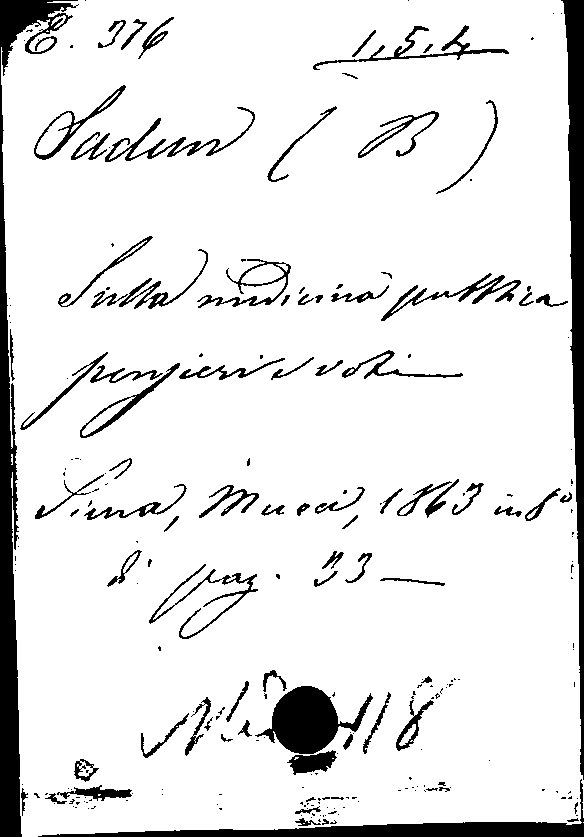 E. 376 1.5.4
Sadun ( B )
Sulla medicina pubblica
pensieri e voti
Siena, Mucci, 1863 in 8º
di pag. 33
118